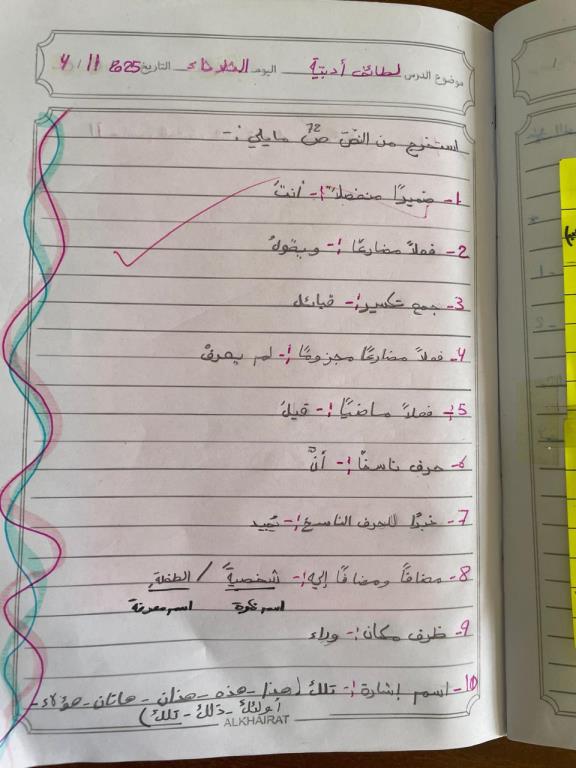 موضوع الدرس لطائف أدبيّة اليوم الثلاثاء التاريخ 2025 / 11 / 4
استخرج من النّصّ ص 72 ما يلي :-
1- ضميرًا منفصلاً :- أنتَ
2- فعلاً مضارعًا :- ويقولُ
3- جمع تكسير :- قبائل
4- فعلاً مضارعًا مجزومًا :- لم يعرفْ
5- فعلاً ماضيًا :- قيلَ
6- حرف ناسخًا :- أنَّ
7- خبرًا للحرف الناسخ :- تُجيد
8- مضافًا ومضافًا إليه :- شخصيةً / الطفلةِ
اسم نكرة اسم معرفة
9- ظرف مكان :- وراء
10- اسم إشارة :- تلكَ (هذا - هذه - هذان - هاتان - هؤلاء -
أولئكَ - ذلكَ - تلكَ)
ALKHAIRAT